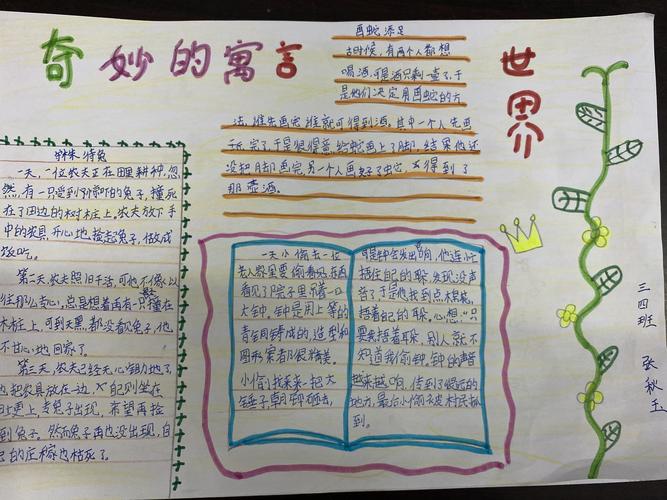 奇妙的寓言
世界
画蛇添足
古时候,有两个人都想
喝酒,可是酒只剩一壶了,于
是他们决定用画蛇的方
法,谁先画完谁就可得到酒。其中一个人先画
完了,于是很得意,给蛇画上了脚,结果他还
没把脚画完,另一个人画好了蛇,得到了
那壶酒。
守株待兔
一天,一位农夫正在田里耕种,忽
然,有一只受到惊吓的兔子,撞死
在了田边的树桩上。农夫放下手
中的农具,开心地捡起兔子,做成
饭吃。
第二天,农夫照旧干活,可他不像以
往那么专心,总是想着再有一只撞在
木桩上,可到天黑,都没看见兔子,他
不甘心地回家了。
第三天,农夫已经无心锄地了,
把农具放在一边,则坐在
上,等兔子出现,希望再捡
到兔子。然而兔子再也没出现,自
己的庄稼也枯死了。
一天小偷去一位
老人家里要偷看见东西
看见了院子里吊着一口
大钟,钟是用上等的
青铜铸成的,造型和
图形案都很精美。
小偷找来一把大
锤子,朝钟砸去,
可是钟会发出响,他连忙
捂住自己的耳朵,发现没声
音了,于是他找到点棉花,
捂着自己的耳朵,心想:“只
要我捂着耳朵,别人就不
知道我偷钟。钟的声音
越来越响,传到了很远的
地方,最后小偷被村民抓
到。
三四班
张秋玉